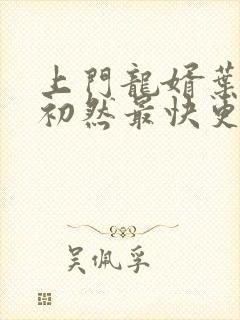 上門龍婿葉
初然最快更
吳佩孚